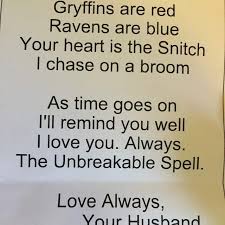 Gryffins are red
Ravens are blue
Your heart is the Snitch
I chase on a broom
As time goes on
I'll remind you well
I love you. Always.
The Unbreakable Spell.
Love Always,
Your Husband